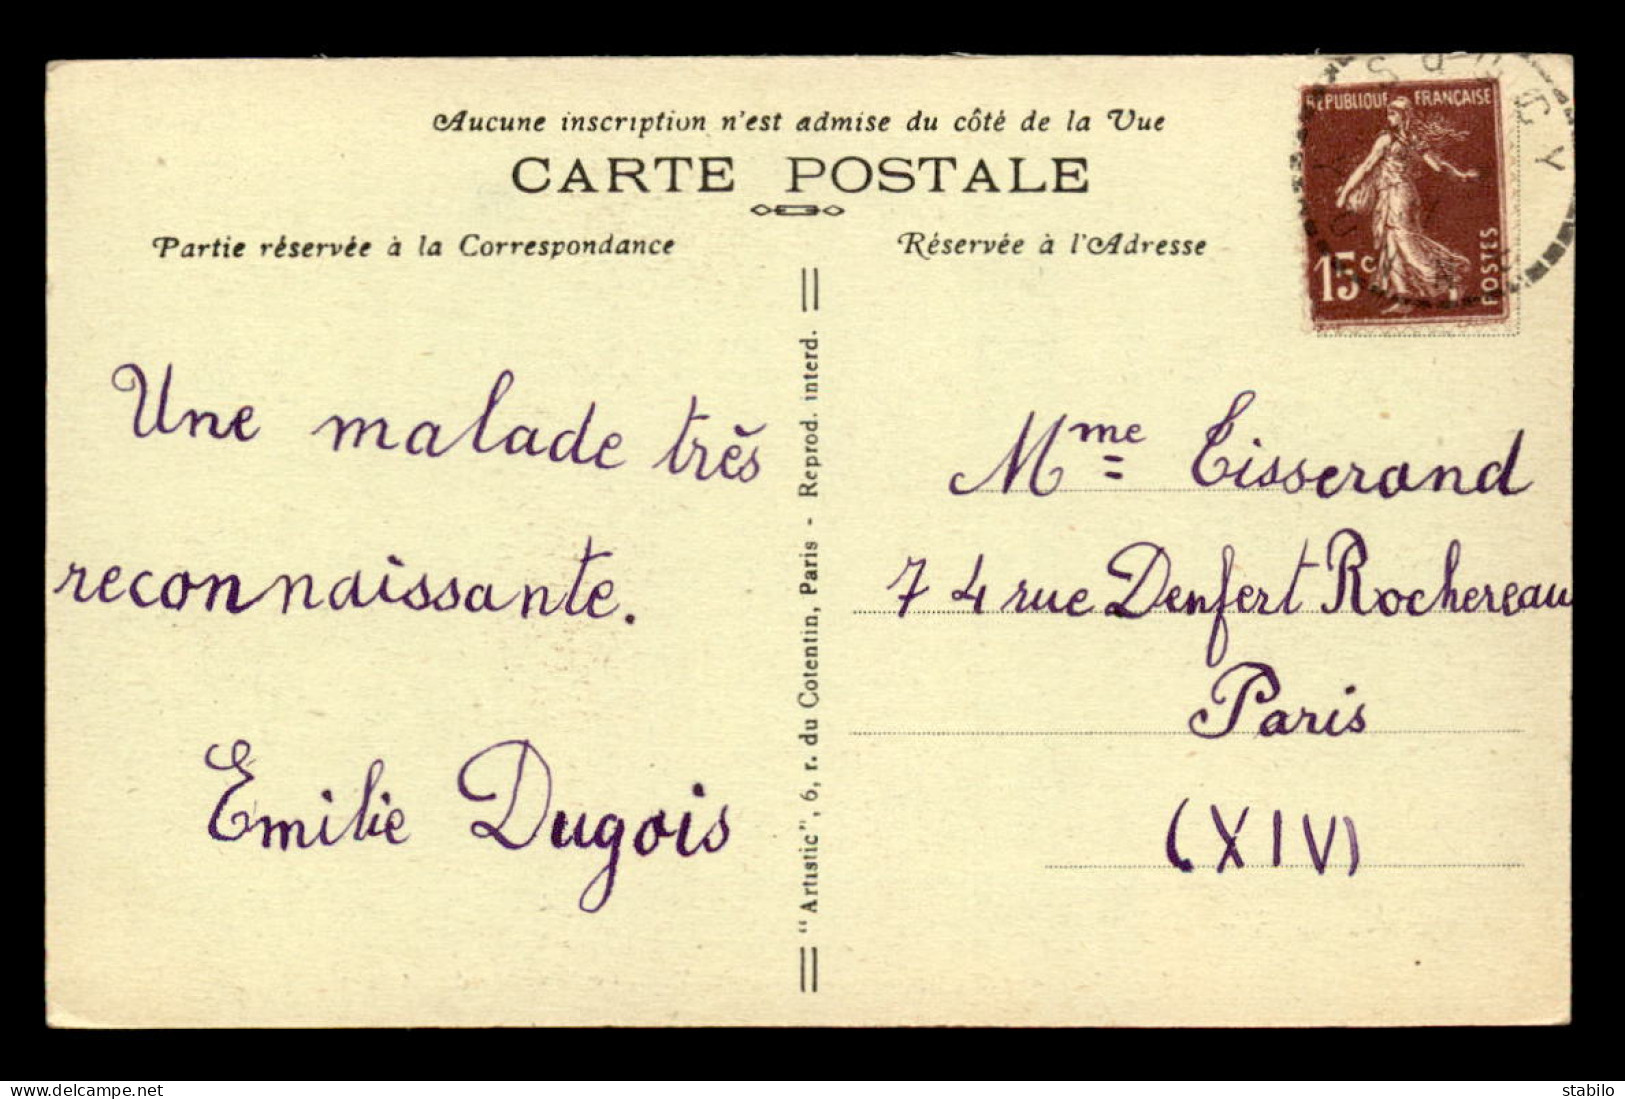 Aucune inscription n'est admise du côté de la Vue
CARTE POSTALE
Partie réservée à la Correspondance
Réservée à l'Adresse
REPUBLIQUE FRANÇAISE
15c
POSTES
Une malade très
reconnaissante.
Emilie Dugois
"Artistic", 6, r. du Cotentin, Paris - Reprod. interd.
Mme Tisserand
74 rue Denfert Rochereau
Paris
(XIV)
www.delcampe.net
stabilo